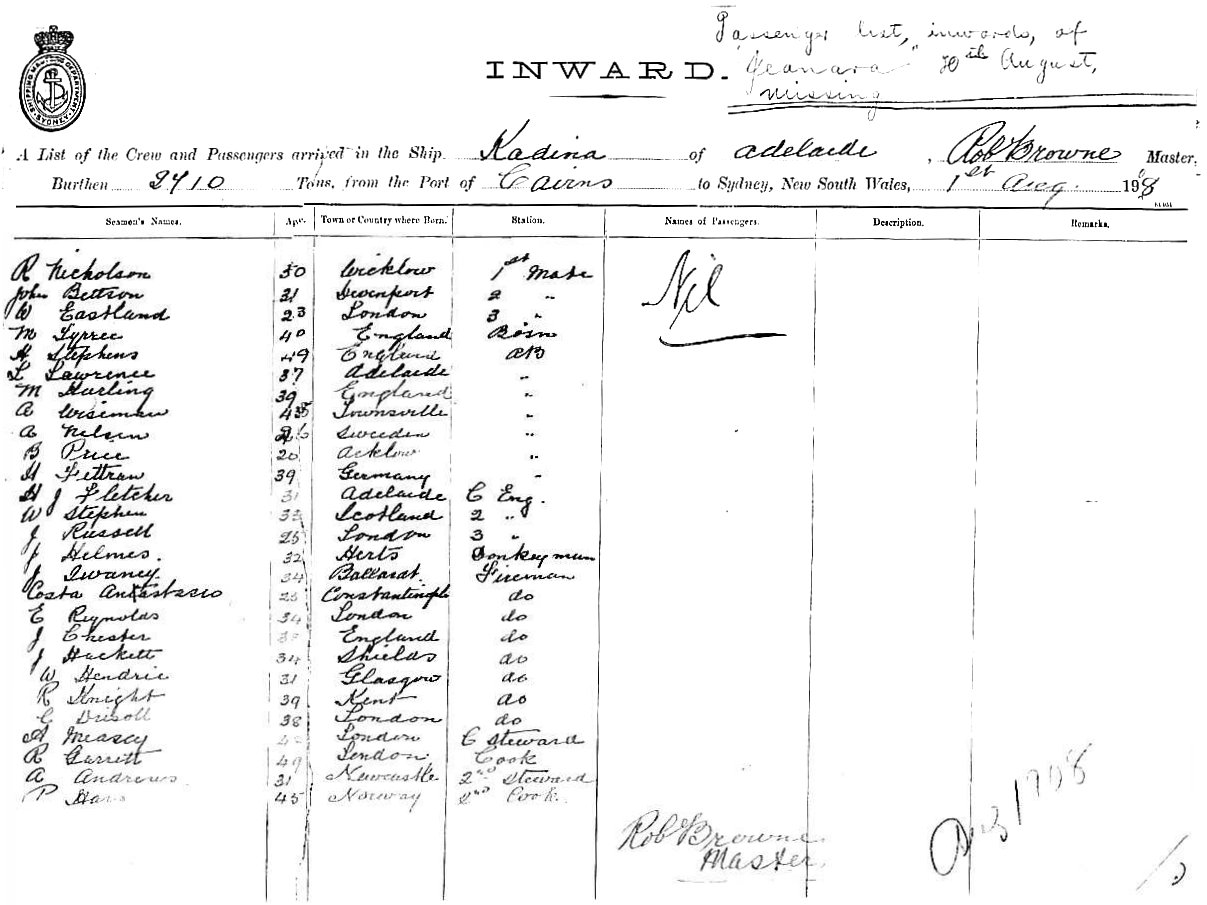 Passenger list, inwards, of
INWARD. "Geanara" 30th August,
missing
SHIPPING MASTERS DEPARTMENT SYDNEY
A List of the Crew and Passengers arrived in the Ship Kadina of Adelaide, Rob Browne Master,
Burthen 2410 Tons, from the Port of Cairns to Sydney, New South Wales, 1st Aug. 1908
Seamen's Names. Age. Town or Country where Born. Station. Names of Passengers. Description. Remarks.
R Nicholson 30 Wicklow 1st Mate Nil
John Bettson 31 Devenport 2 "
W Eastland 23 London 3 "
M Tyrree 40 England Bosn
A Stephens 49 England AB
L Lawrence 37 Adelaide "
M Harling 39 England "
A Wiseman Townsville "
A Nelsen Sweeden "
B Price 20 Acklow "
H Fettraw 39 Germany "
H J Fletcher 31 Adelaide C Eng.
W Stephen 33 Scotland 2 "
J Russell 25 London 3 "
J Helmes. 32 Herts Donkeyman
J Swaney 34 Ballarat. Fireman
Costa Antastasio 25 Constantinople do
E Reynolds 34 London do
J Chester England do
J Hackett 34 Shields do
W Hendrie 31 Glasgow do
R Knight 39 Kent do
C Drisoll 38 London do
A Measey London C Steward
R Garrett 49 London Cook
A Andrews 31 Newcastle 2nd Steward
P Hans 45 Norway 2nd Cook
Rob Browne
Master
Aug 1908